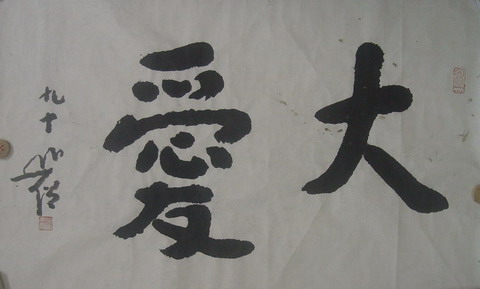 大愛
九十